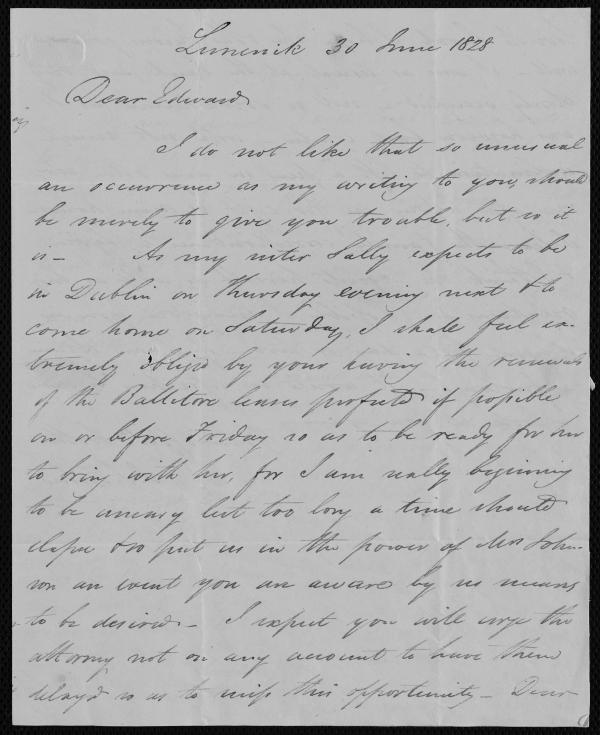 Limerick 30 June 1828
Dear Edward
I do not like that so unusual
an occurrence as my writing to you, should
be merely to give you trouble, but so it
is - As my sister Sally expects to be
in Dublin on Thursday evening next & to
come home on Saturday, I shall feel ex-
tremely obliged by your having the renewals
of the Ballitore leases perfected if possible
on or before Friday so as to be ready for her
to bring with her, for I am really beginning
to be uneasy lest too long a time should
elapse & so put us in the power of Mrs John-
son an event you are aware by no means
to be desired - I expect you will urge the
attorney not on any account to have them
delayd so as to miss this opportunity - Dear